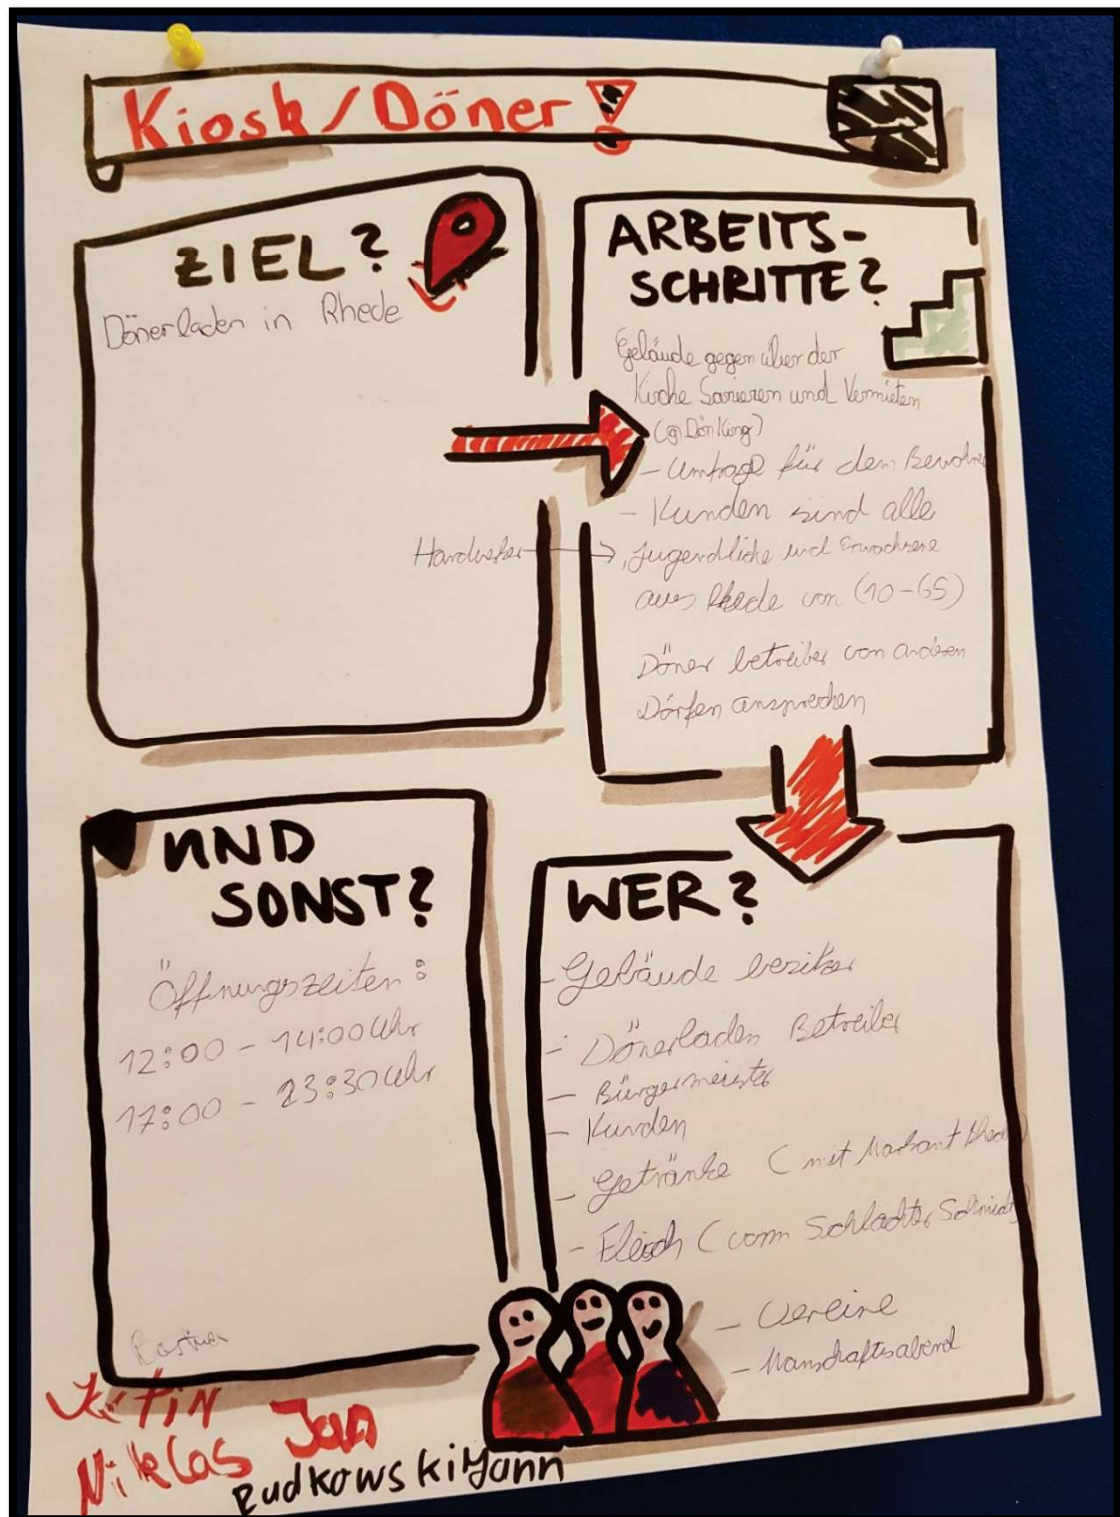 Kiosk/Döner
ZIEL?
Dönerladen in Rhede
ARBEITS-
SCHRITTE?
Gebäude gegenüber der
Kirche Sanieren und Vermieten
(@DönKing)
- Umfrage für dem Bewohner
- Kunden sind alle
Handwerker → Jugendliche und Erwachsene
aus Rhede von (10-65)
Döner betreiber von anderen
Dörfen ansprechen
UND
SONST?
Öffnungszeiten:
12:00 - 14:00 Uhr
17:00 - 23:30 Uhr
WER?
- Gebäude besitzer
- Dönerladen Betreiber
- Bürgermeister
- Kunden
- Getränke (mit Markant Rhede)
- Fleisch (vom Schlachter Schmidt)
- Vereine
- Manschaftsabend
Niklas Jan
Rudkowski Yann